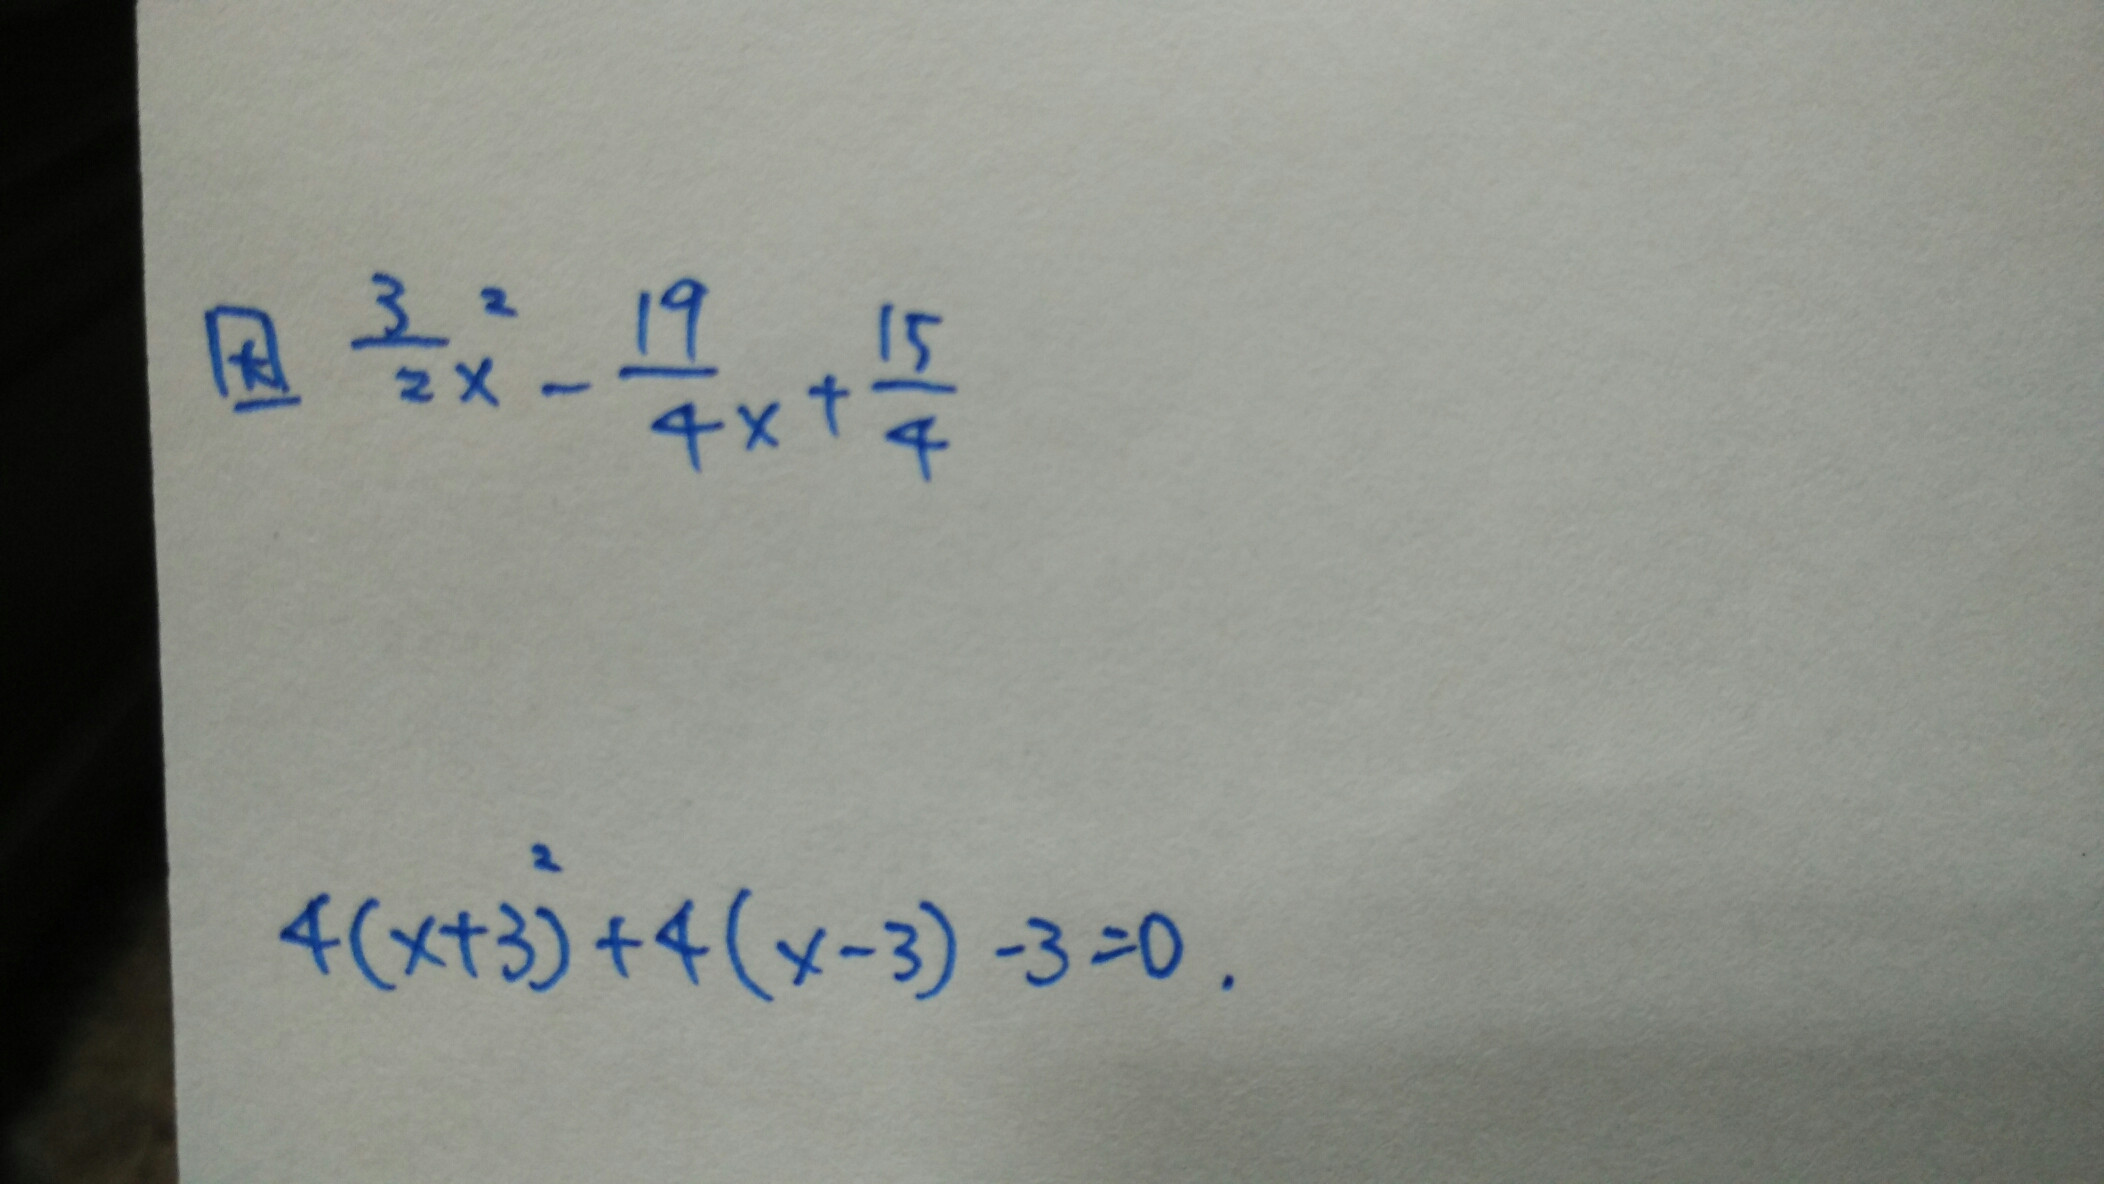 因 3/2 x² - 19/4 x + 15/4
4(x+3)² + 4(x-3) -3=0.